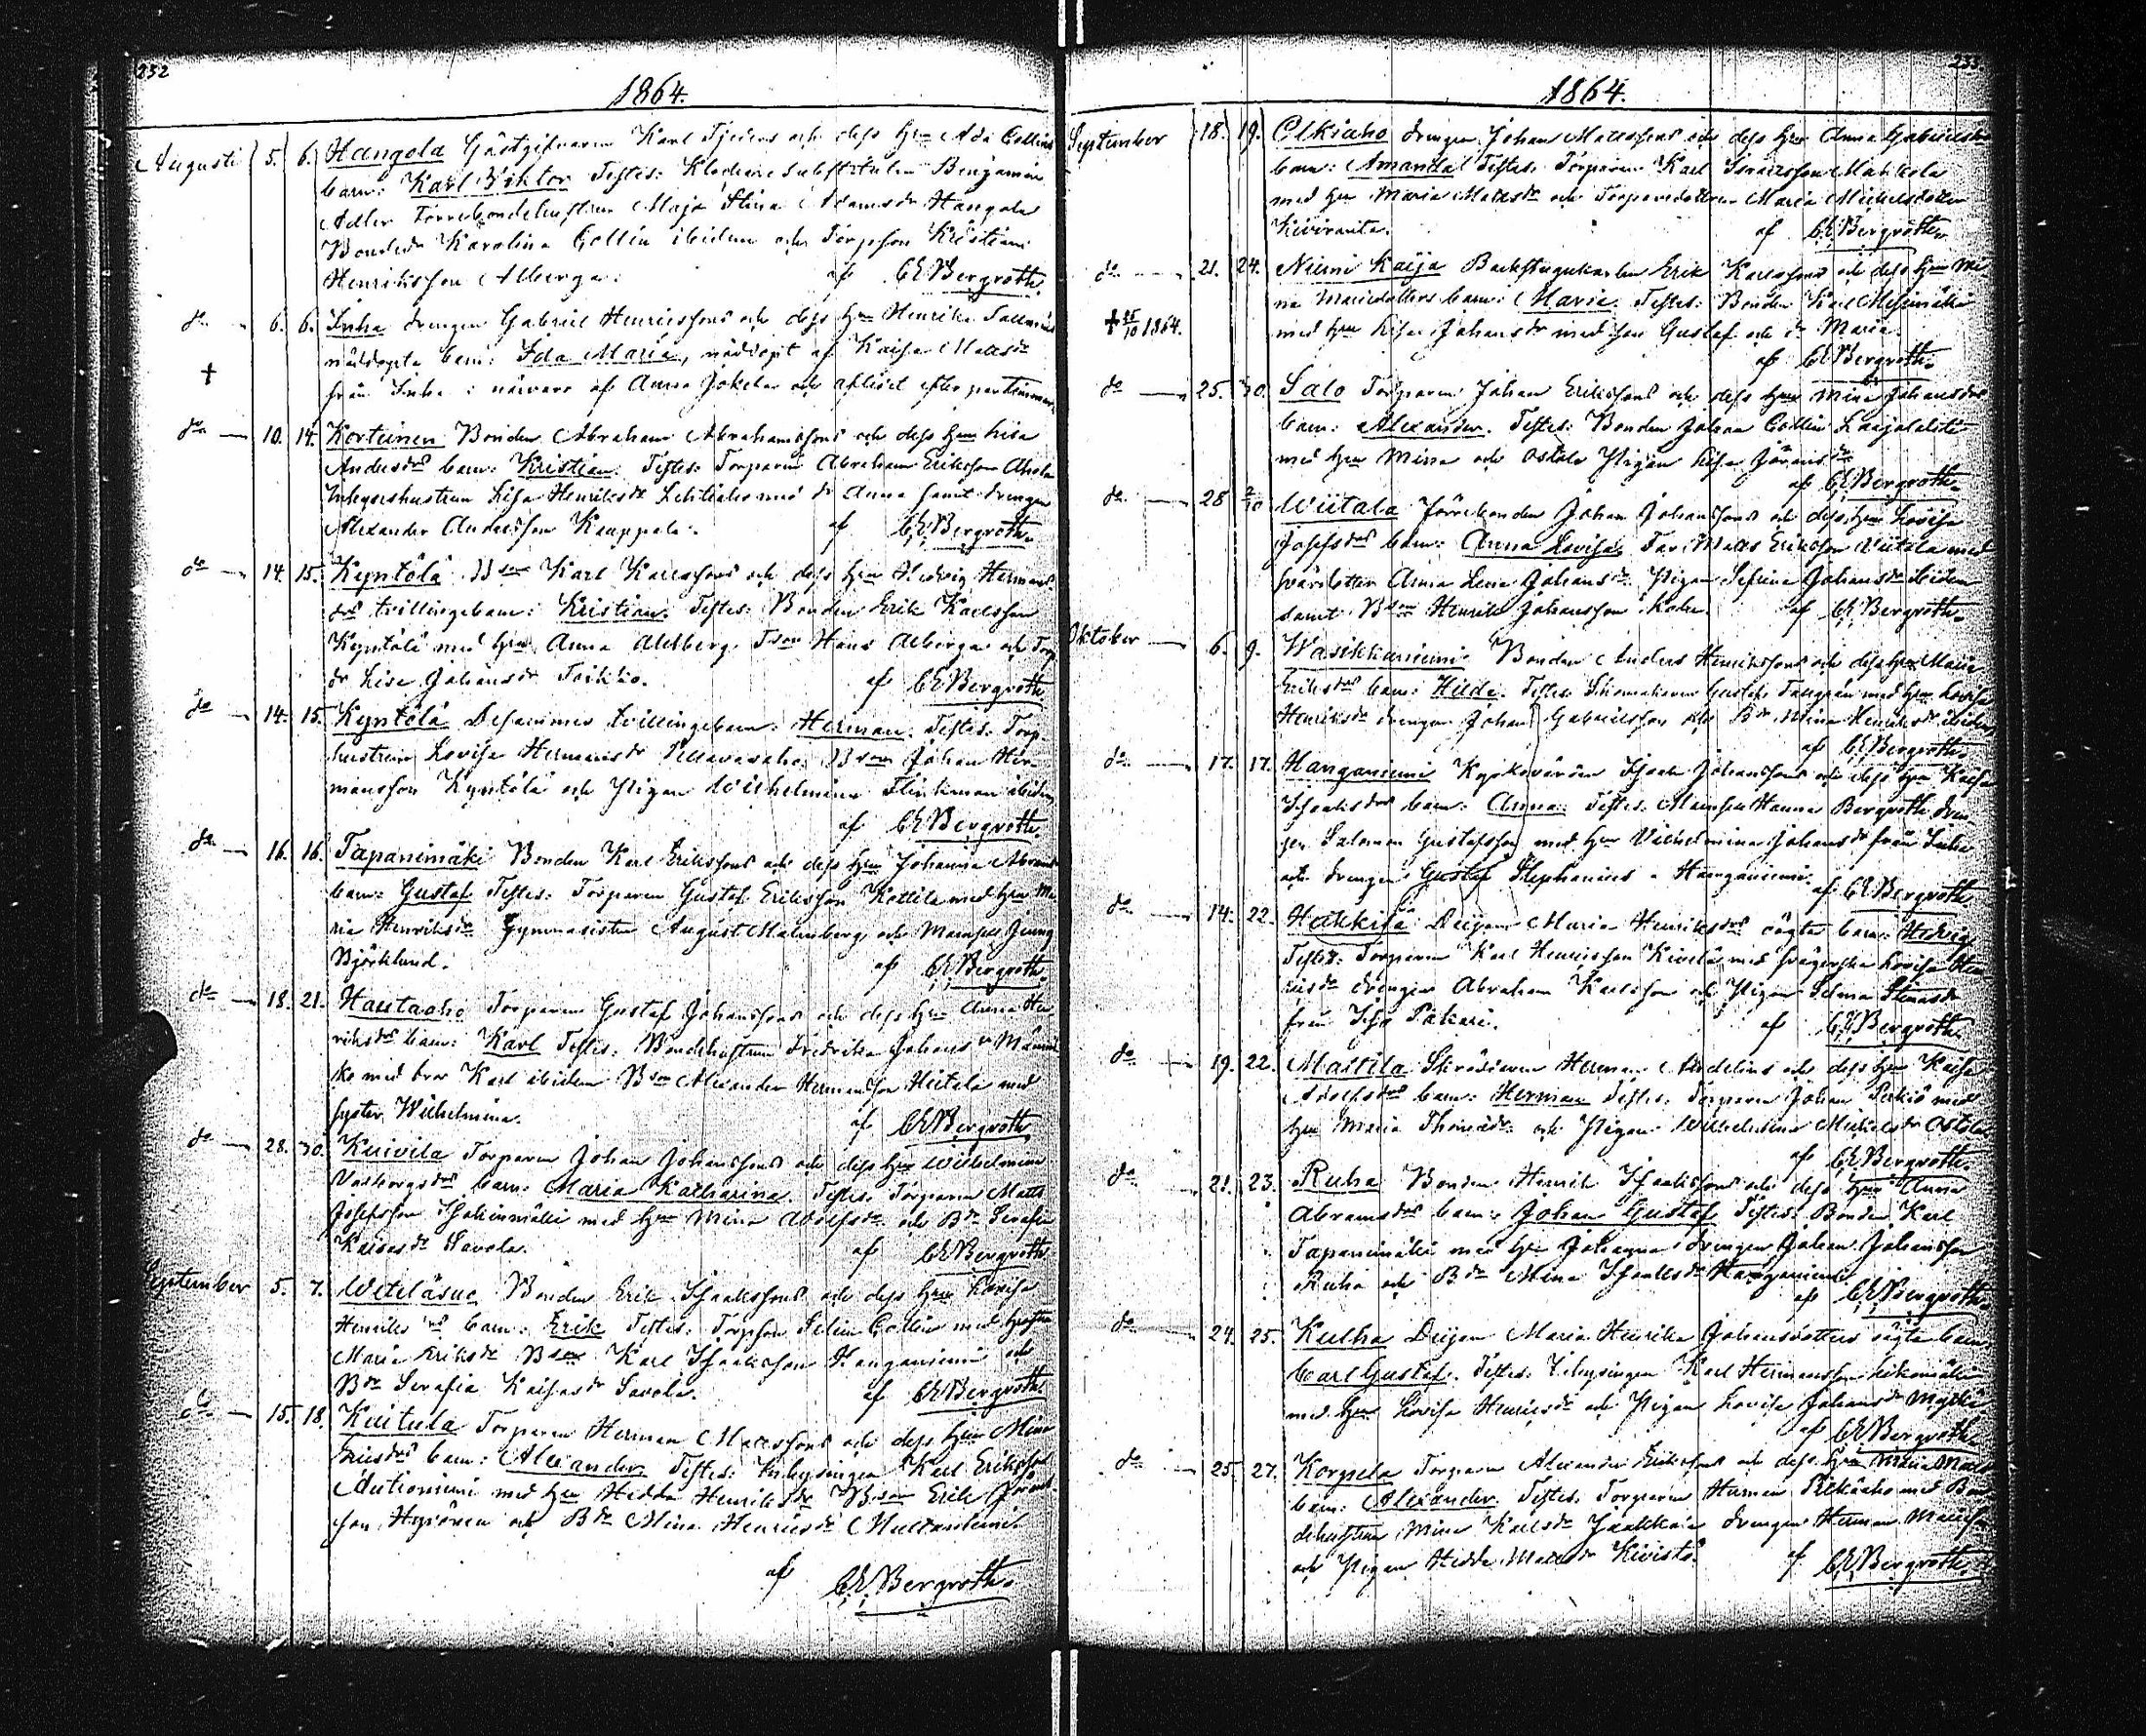 252
1864.
Augusti 5. 6. Hangola Gästgifvaren Karl Tjeders och dess hru Ada Collins
barn: Karl Wiktor Testes: Klockare Substituten Benjamin
Adler Förrebondehustrun Maja Stina Adamsdr Hangola
Bondedr Karolina Collin ibidem och Torpson Kristian
Henriksson Alberga. af CEBergroth.
do 6. 6. Inha drengen Gabriel Henricssons och dess hru Henrika
† nöddöpta barn: Ida Maria, nöddöpt af Kaisa Mattsdr
från Inha i närvaro af Anna Jokela och
do 10. 14. Korteinen Bonden Abraham Abrahamssons och dess hru Lisa
Andersdrs barn: Kristian. Testes: Torparen Abraham Eriksson Ahola
Inhyseshustrun Lisa Henriksdr med dr Anna samt drengen
Alexander Andersson Kauppala. af CEBergroth.
do 14. 15. Kyntölä Bson Karl Karlssons och dess hru Hedvig Hermans
drs tvillingebarn: Kristian. Testes: Bonden Erik Karlsson
Kyntölä med hru Anna Ahlberg Tson Hans Alberga och Torp
dr Lisa Johansdr Toikko. af CEBergroth
do 14. 15. Kyntölä Desammes tvillingebarn: Herman. Testes: Torp
hustrun Lovisa Hermansdr Bson Johan Her-
mansson Kyntölä och Pigan Wilhelmina Flinkman ibidem
af CEBergroth
do 16. 16. Tapanimäki Bonden Karl Erikssons och dess hru Johanna Abramsdr
barn: Gustaf Testes: Torparen Gustaf Eriksson Kottila med hru Ma
ria Henriksdr Gymnasisten August Malmberg och Mamsell Jenny
Björklund. af CEBergroth.
do 18. 21. Hautaaho Torparen Gustaf Johanssons och dess hru Anna Hen
riksdrs barn: Karl Testes: Bondehustrun Fredrika Johansdr
ko med bror Karl ibidem Bson Alexander Hermansson Heitala med
syster Wilhelmina. af CEBergroth
do 28. 30. Kuivila Torparen Johan Johanssons och dess hru Wilhelmina
barn: Maria Katharina. Testes: Torparen Matts
Josefsson med hru Mina Adolfsdr och Bdr Serafia
Kaisasdr Savola. af CEBergroth
September 5. 7. Weteläsuo Bonden Erik Isakssons och dess hru Lovisa
Henriksdrs barn: Erik Testes: Torpson Selim Collin med hustru
Maria Eriksdr Bson Karl Isaksson Hanganiemi och
Bdr Serafia Kaisasdr Savola. af CEBergroth
do 15. 18. Kuitula Torparen Herman Mattssons och dess hru Mina
Ericsdrs barn: Alexander Testes: Inhysingen Karl Eriksson
Autioniemi med hru Hedda Henriksdr Bson Erik
son Hyrönen och Bdr Mina Henricsdr Multaniemi.
af CEBergroth.
253.
1864.
September 18. 19. Elkiaho drengen Johan Mattssons och dess hru Anna Gabrielsdr
barn: Amanda Testes: Torparen Karl Israelsson Mattola
med hru Maria Mattsdr och Torparedottren Maria Michelsdotter
Kiviranta. af CEBergroth
do 21. 24. Niemi Kaija Backstugukarlen Erik Karlssons och dess hru Mi
na Mariedotters barn: Maria. Testes: Bonden Karl
† 25/10 1864. med hru Lisa Johansdr med son Gustaf och dr Maria.
af CEBergroth.
do 25. 30. Salo Torparen Johan Erikssons och dess hru Mina Johansdrs
barn: Alexander. Testes: Bonden Johan Collin
med hru Mina och Ostola Pigan Lisa Göransdr
af CEBergroth.
do 28 2/10 Wiitala Förrebonden Johan Johanssons och dess hru Lovisa
Josefsdrs barn: Anna Lovisa. Far: Matts Eriksson Wiitala med
Anna Lena Johansdr. Pigan Sefrina Johansdr ibidem
samt Bson Henrik Johansson Kohu af CEBergroth.
Oktober 6. 9. Wasikkaniemi Bonden Anders Henrikssons och dess hru Maria
Eriksdrs barn: Hilda. Testes: Skomakaren Gustaf Tallgrén med hru Lovisa
Henriksdr drengen Johan Gabrielsson och Bdr Mina Henriksdr ibidem
af CEBergroth
do 17. 17. Hanganiemi Kyrkovärden Isak Johanssons och dess hru Kaisa
Isaksdrs barn: Anna. Testes: Mamsell Hanna Bergroth dren
gen Salomon Gustafsson med hru Vilhelmina Johansdr från Inha
och drengen Gustaf Stephanius - Hanganiemi. af CEBergroth
do 14. 22. Hakkila Deijan Maria Henriksdrs oägta barn: Hedvig
Testes: Torparen Karl Henricsson Kivelä med svägerska Lovisa Hen
ricsdr drengen Abraham Karlsson och Pigan Selma Stinasdr
från Iso Pakari. af CEBergroth.
do 19. 22. Mattila Skräddaren Herman Andelins och dess hru Kaisa
Adolfsdrs barn: Herman Testes: Torparen Johan Perkiö med
hru Maria Thomasdr och Pigan Wilhelmina Michelsdr Ostola
af CEBergroth.
do 21. 23. Ruha Bonden Henrik Isakssons och dess hru Anna
Abramsdrs barn: Johan Gustaf Testes: Bonden Karl
Tapanimäki med hru Johanna drengen Johan Johansson
Ruha och Bdr Mina Isaksdr Hanganiemi
af CEBergroth.
do 24. 25. Kulha Deijan Maria Henrika Johansdotters oägta barn
Carl Gustaf. Testes: Inhysingen Karl Hermansson
med hru Lovisa Henricsdr och Pigan Lovisa Johansdr
af CEBergroth
do 25. 27. Korpela Torparen Alexander Erikssons och dess hru Maria Matts
barn: Alexander. Testes: Torparen Herman Pelkiaho med Bon
dehustrun Mina Karlsdr Jaakkola drengen Herman
och Pigan Hedda Mattsdr Kivistö. af CEBergroth.